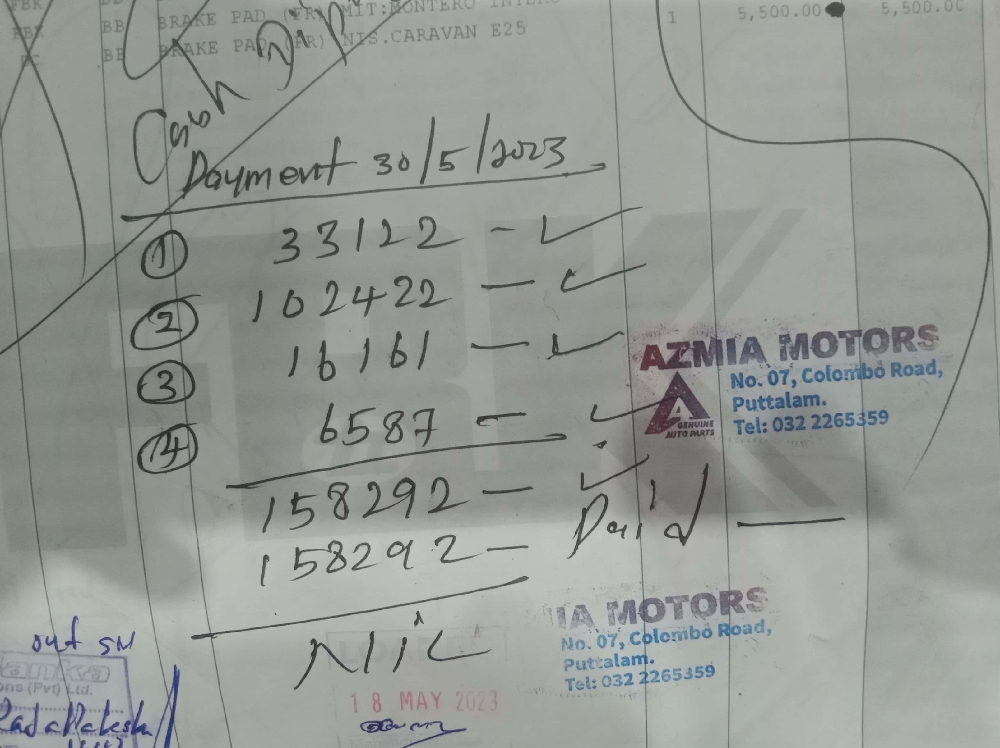 FBK BB BRAKE PAD (FR) MIT:MONTERO INTER
BRAKE PAD (FR) NIS.CARAVAN E25 1 5,500.00 5,500.00
Cash
Payment 30/5/2023
① 33122 -
② 102422 -
③ 16161 -
④ 6587 -
158292 -
158292 - Paid
Nil
AZMIA MOTORS
No. 07, Colombo Road,
Puttalam.
Tel: 032 2265359
GENUINE
AUTO PARTS
IA MOTORS
No. 07, Colombo Road,
Puttalam.
Tel: 032 2265359
18 MAY 2023
out SM
ons (Pvt) Ltd.